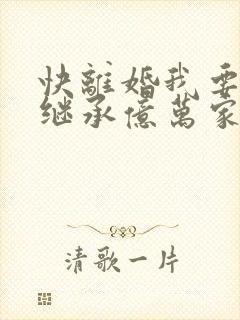 快離婚我要
继承億萬家
清歌一片